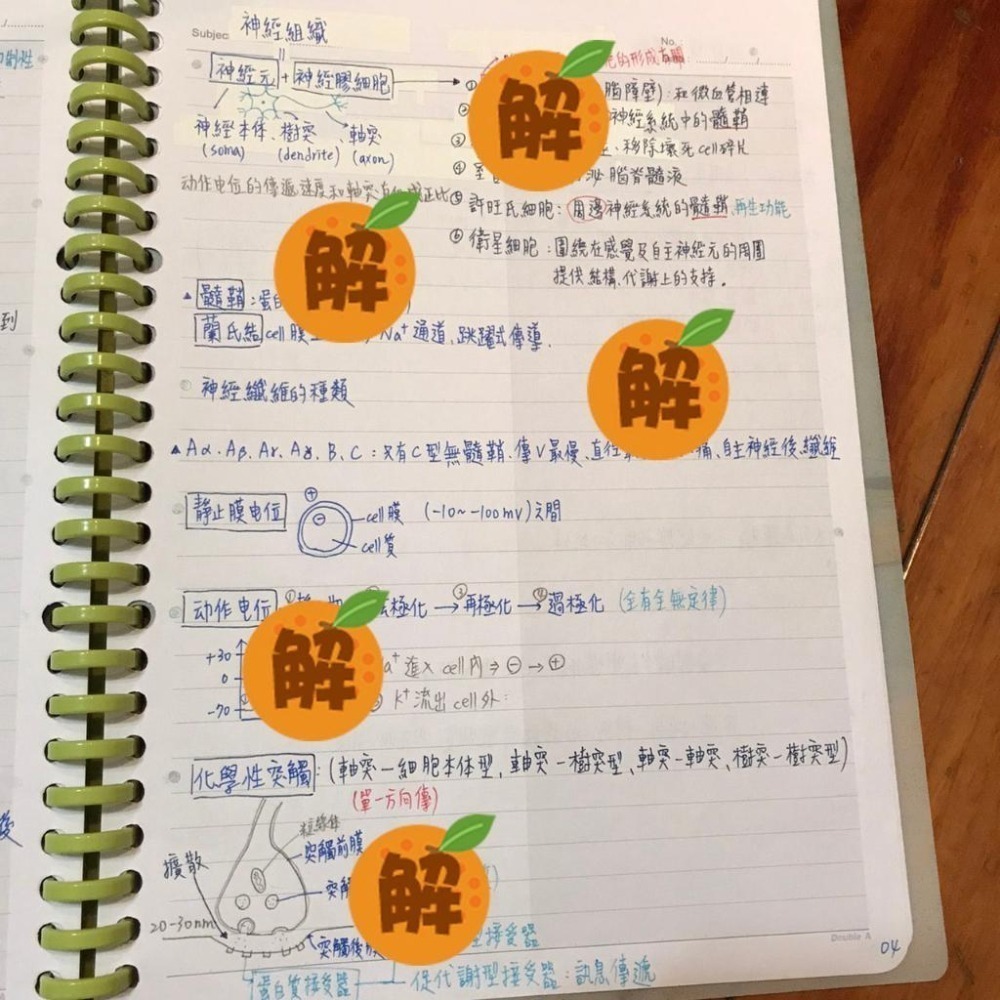 Subjec 神經組織
No.
神經元 + 神經膠細胞 → ① 的形成有關
腦障壁): 和微血管相連
神經系統中的髓鞘
③ 移除壞死cell碎片
神經本体、樹突、軸突
(soma) (dendrite) (axon)
④ 泌腦脊髓液
动作电位的傳遞速度和軸突 成正比
⑤ 許旺氏細胞: 周邊神經系統的髓鞘,再生功能
⑥ 衛星細胞: 圍繞在感覺及自主神經元的周圍
提供結構、代謝上的支持。
▲ 髓鞘: 蛋白
蘭氏結 cell膜 Na⁺通道,跳躍式傳導.
神經纖維的種類
▲ Aα、Aβ、Aγ、B、C: 只有C型無髓鞘,傳V最慢、直徑 痛、自主神經後纖維
靜止膜电位 ⊕ ⊖ cell膜 (-10~-100mV)之間
cell質
动作电位 ① 極化 → ③再極化 → ④過極化 (全有全無定律)
+30 a⁺進入cell內⇒⊖→⊕
0
-70 K⁺流出cell外:
化學性突觸: (軸突-細胞本体型、軸突-樹突型、軸突-軸突、樹突-樹突型)
(單一方向傳)
粒線体
突觸前膜
擴散
突觸
20-30nm
突觸後膜 型接受器
蛋白質接受器 促代謝型接受器: 訊息傳遞
Double A
04
解
解
解
解
解